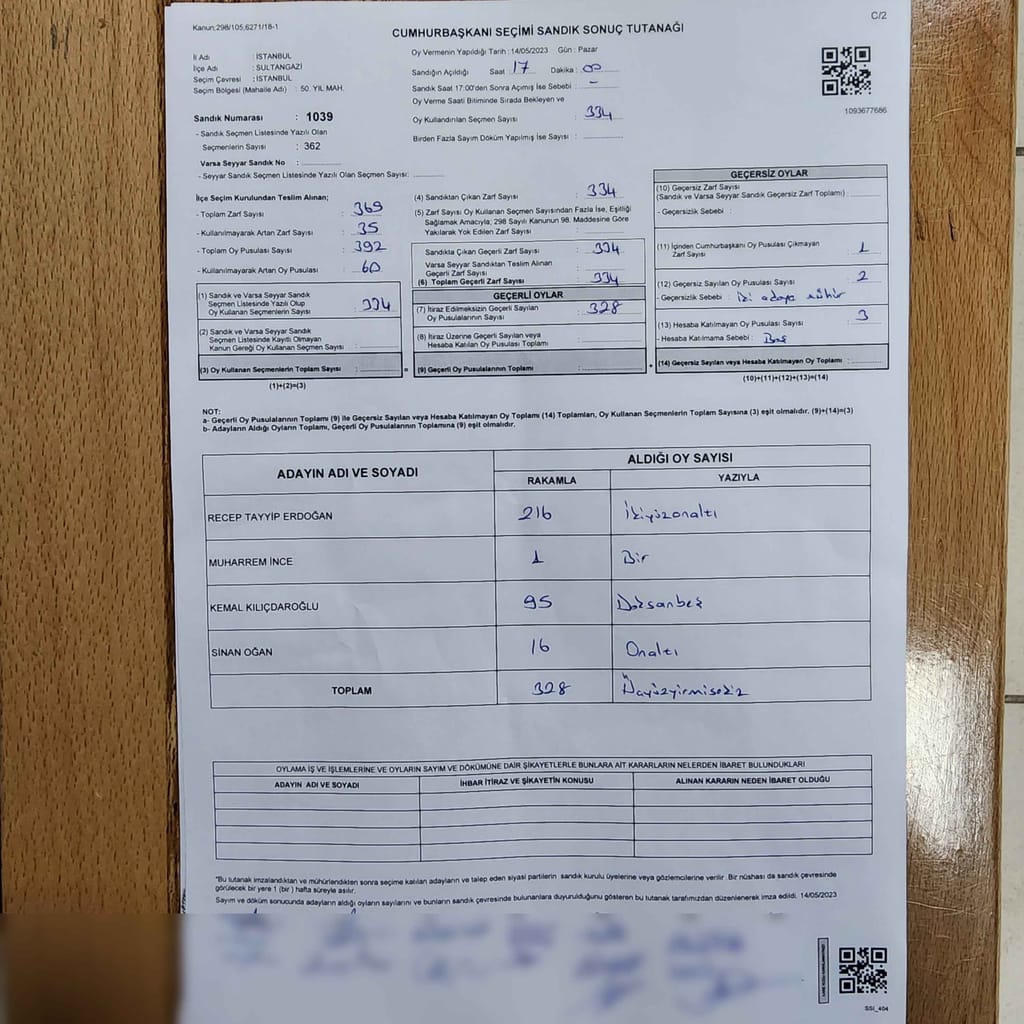 Kanun;298/105,6271/18-1
C/2
CUMHURBAŞKANI SEÇİMİ SANDIK SONUÇ TUTANAĞI
İl Adı : İSTANBUL
İlçe Adı : SULTANGAZİ
Seçim Çevresi : İSTANBUL
Seçim Bölgesi (Mahalle Adı) : 50. YIL MAH.
Oy Vermenin Yapıldığı Tarih : 14/05/2023 Gün : Pazar
Sandığın Açıldığı Saat 17 Dakika 00
Sandık Saat 17:00'den Sonra Açımış İse Sebebi : -
Oy Verme Saati Bitiminde Sırada Bekleyen ve
Oy Kullandırılan Seçmen Sayısı : 334
Birden Fazla Sayım Döküm Yapılmış İse Sayısı :
1093677686
Sandık Numarası : 1039
- Sandık Seçmen Listesinde Yazılı Olan
Seçmenlerin Sayısı : 362
Varsa Seyyar Sandık No :
- Seyyar Sandık Seçmen Listesinde Yazılı Olan Seçmen Sayısı:
İlçe Seçim Kurulundan Teslim Alınan;
- Toplam Zarf Sayısı : 369
- Kullanılmayarak Artan Zarf Sayısı : 35
- Toplam Oy Pusulası Sayısı : 392
- Kullanılmayarak Artan Oy Pusulası : 60
(1) Sandık ve Varsa Seyyar Sandık
Seçmen Listesinde Yazılı Olup
Oy Kullanan Seçmenlerin Sayısı : 334
(2) Sandık ve Varsa Seyyar Sandık
Seçmen Listesinde Kayıtlı Olmayan
Kanun Gereği Oy Kullanan Seçmen Sayısı :
(3) Oy Kullanan Seçmenlerin Toplam Sayısı :
(1)+(2)=(3)
(4) Sandıktan Çıkan Zarf Sayısı : 334
(5) Zarf Sayısı Oy Kullanan Seçmen Sayısından Fazla İse, Eşitliği
Sağlamak Amacıyla; 298 Sayılı Kanunun 98. Maddesine Göre
Yakılarak Yok Edilen Zarf Sayısı :
Sandıkta Çıkan Geçerli Zarf Sayısı : 334
Varsa Seyyar Sandıktan Teslim Alınan
Geçerli Zarf Sayısı :
(6) Toplam Geçerli Zarf Sayısı : 334
GEÇERLİ OYLAR
(7) İtiraz Edilmeksizin Geçerli Sayılan
Oy Pusulasının Sayısı : 328
(8) İtiraz Üzerine Geçerli Sayılan veya
Hesaba Katılan Oy Pusulası Toplamı :
(9) Geçerli Oy Pusulalarının Toplamı :
GEÇERSİZ OYLAR
(10) Geçersiz Zarf Sayısı
(Sandık ve Varsa Seyyar Sandık Geçersiz Zarf Toplamı) :
- Geçersizlik Sebebi :
(11) İçinden Cumhurbaşkanı Oy Pusulası Çıkmayan
Zarf Sayısı : 1
(12) Geçersiz Sayılan Oy Pusulası Sayısı : 2
- Geçersizlik Sebebi : iki adaya mühür
(13) Hesaba Katılmayan Oy Pusulası Sayısı : 3
- Hesaba Katılmama Sebebi : Boş
(14) Geçersiz Sayılan veya Hesaba Katılmayan Oy Toplamı :
(10)+(11)+(12)+(13)=(14)
NOT:
a- Geçerli Oy Pusulalarının Toplamı (9) ile Geçersiz Sayılan veya Hesaba Katılmayan Oy Toplamı (14) Toplamları, Oy Kullanan Seçmenlerin Toplam Sayısına (3) eşit olmalıdır. (9)+(14)=(3)
b- Adayların Aldığı Oyların Toplamı, Geçerli Oy Pusulalarının Toplamına (9) eşit olmalıdır.
ADAYIN ADI VE SOYADI ALDIĞI OY SAYISI
RAKAMLA YAZIYLA
RECEP TAYYİP ERDOĞAN 216 İkiyüzonaltı
MUHARREM İNCE 1 Bir
KEMAL KILIÇDAROĞLU 95 Doksanbeş
SİNAN OĞAN 16 Onaltı
TOPLAM 328 Üçyüzyirmisekiz
OYLAMA İŞ VE İŞLEMLERİNE VE OYLARIN SAYIM VE DÖKÜMÜNE DAİR ŞİKAYETLERLE BUNLARA AİT KARARLARIN NELERDEN İBARET BULUNDUKLARI
ADAYIN ADI VE SOYADI İHBAR İTİRAZ VE ŞİKAYETİN KONUSU ALINAN KARARIN NEDEN İBARET OLDUĞU
"Bu tutanak imzalandıktan ve mühürlendikten sonra seçime katılan adayların ve talep eden siyasi partilerin sandık kurulu üyelerine veya gözlemcilerine verilir. Bir nüshası da sandık çevresinde
görülecek bir yere 1 (bir) hafta süreyle asılır.
Sayım ve döküm sonucunda adayların aldığı oyların sayılarını ve bunların sandık çevresinde bulunanlara duyurulduğunu gösteren bu tutanak tarafımızdan düzenlenerek imza edildi. 14/05/2023
SSI_404